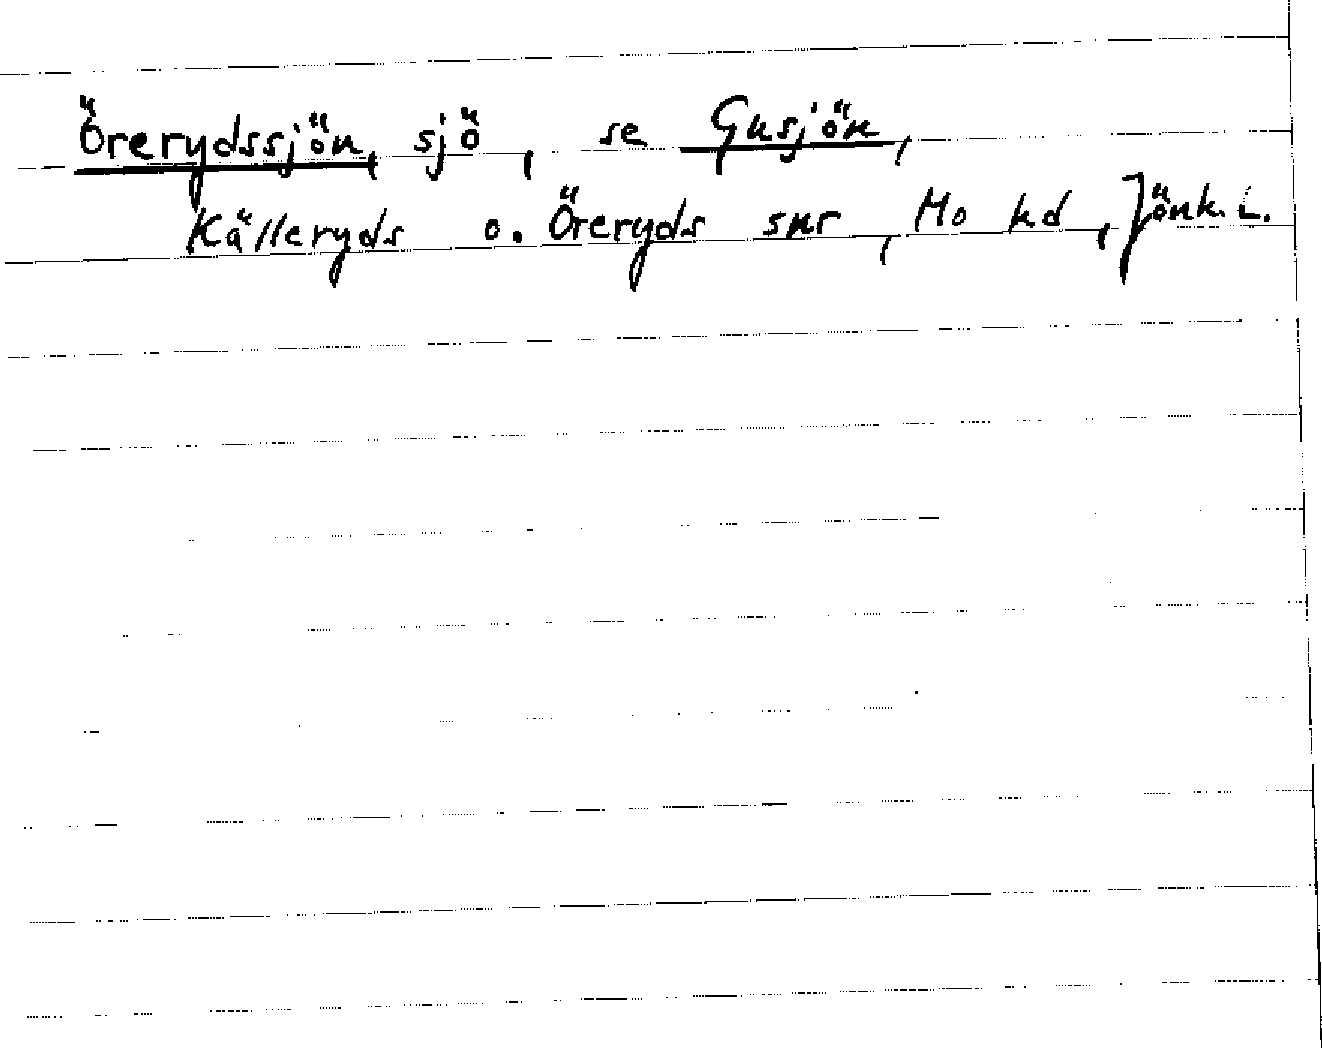 Örerydssjön, sjö, se Gusjön,
Källeryds o. Öreryds snr, Mo hd, Jönk. L.